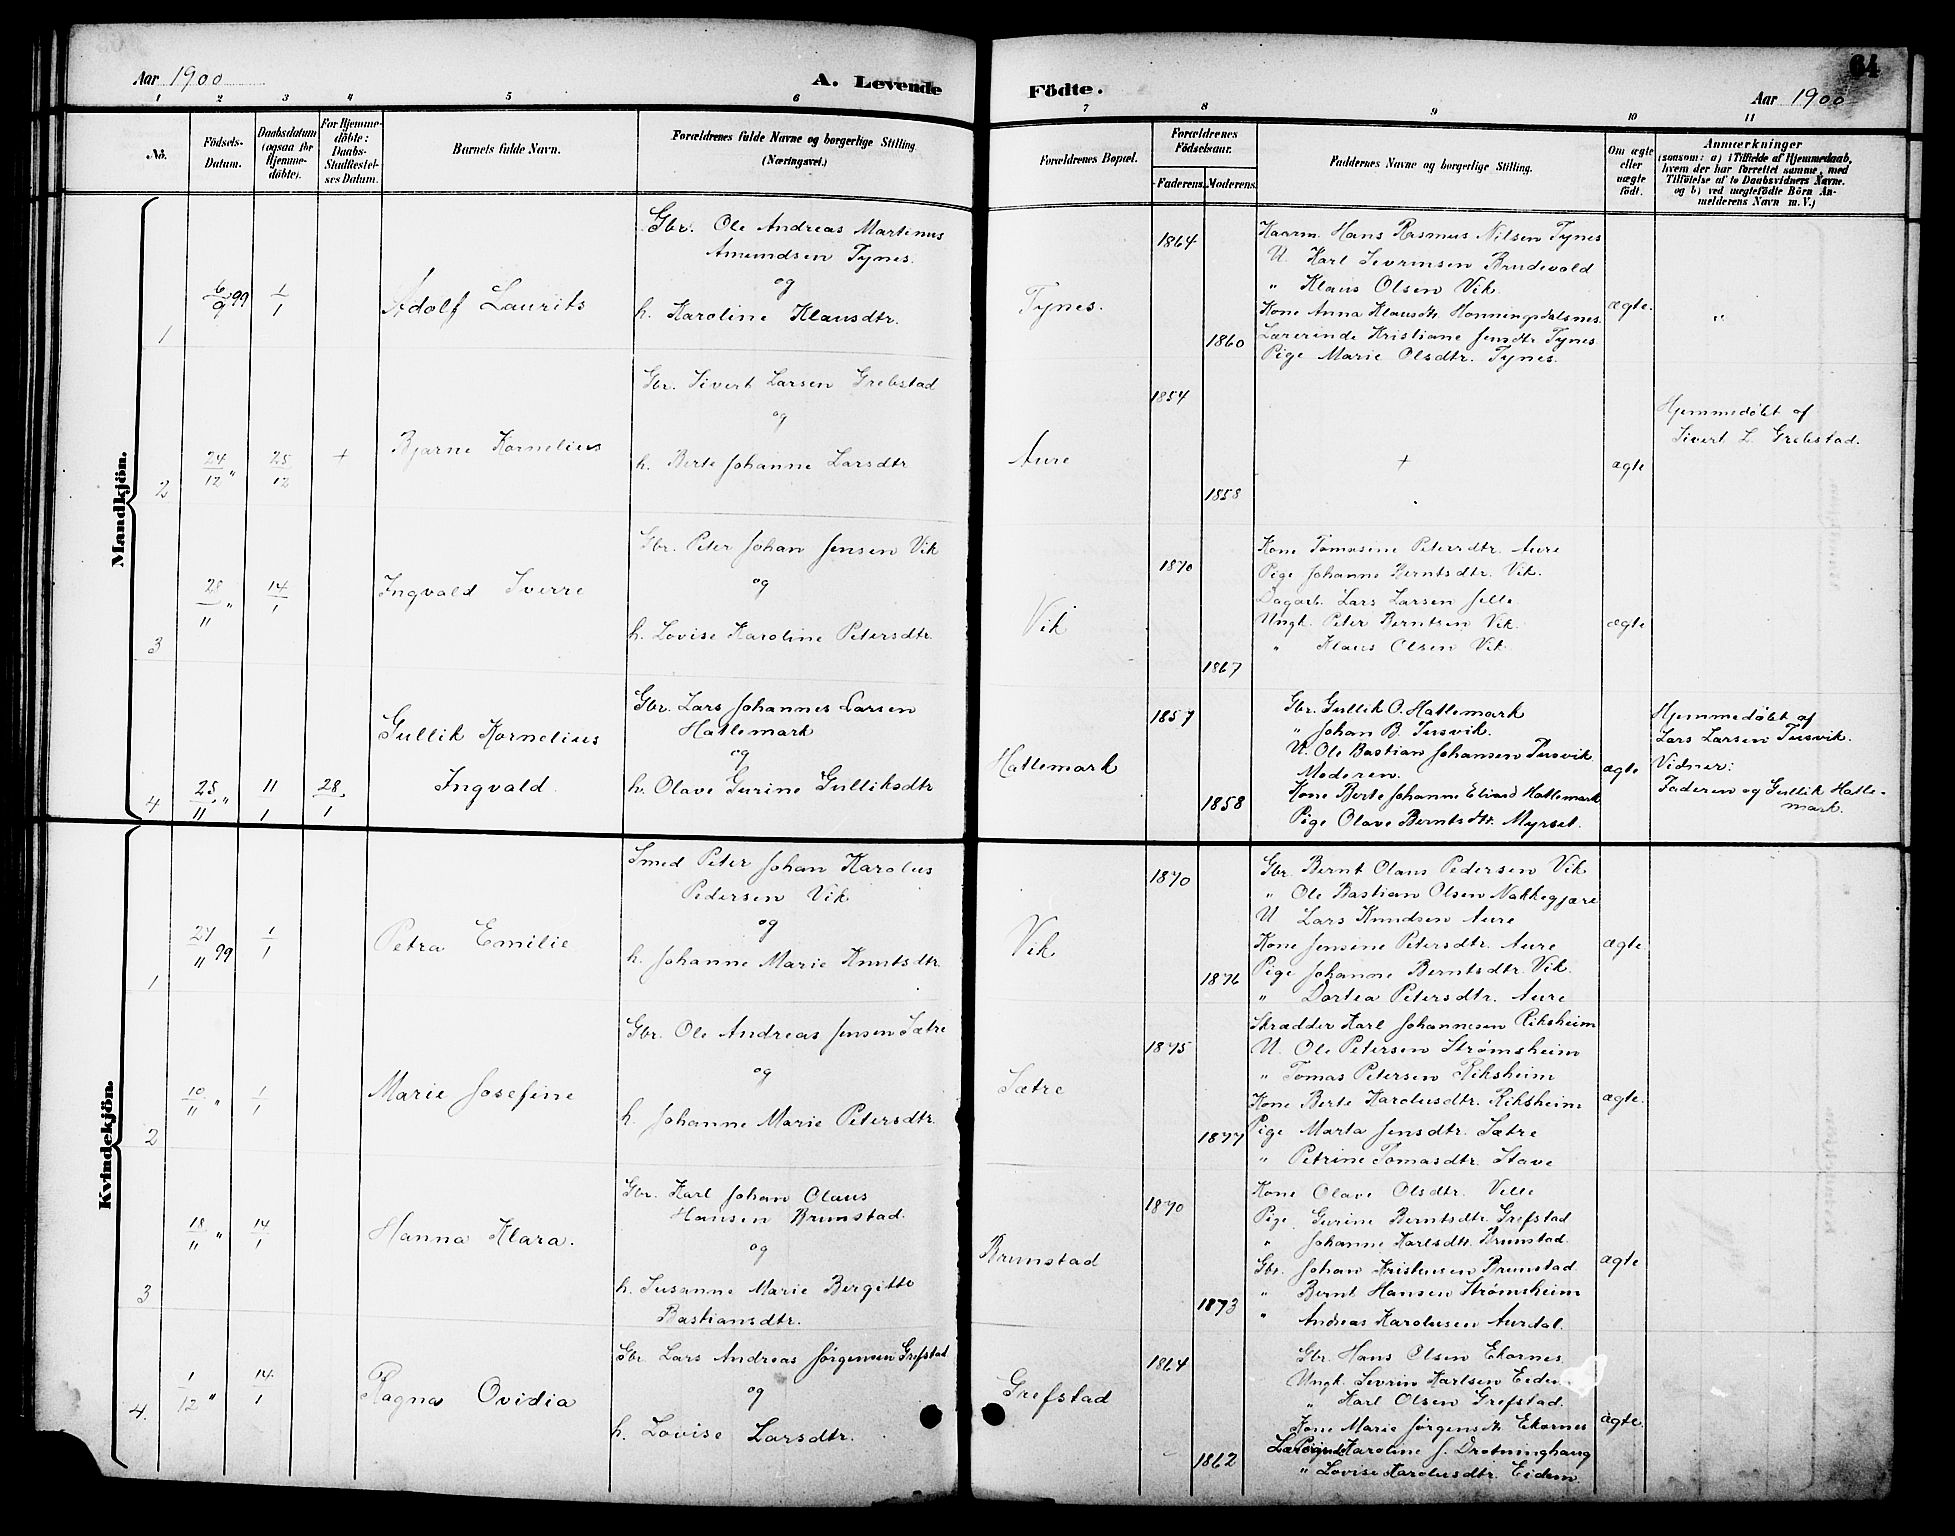 Aar 1900
A. Levende
Födte.
Aar 1900
64
1 2 3 4 5 6 7 8 9 10 11
No.
Födsels-
Datum.
Daabsdatum
(ogsaa for
Hjemme-
döbte).
For Hjemme-
döbte:
Daabs-
Stadfæstel-
ses Datum.
Barnets fulde Navn.
Forældrenes fulde Navne og borgerlige Stilling
(Næringsvei.)
Forældrenes Bopæl.
Forældrenes
Födselsaar.
Faderens.
Moderens.
Faddernes Navne og borgerlige Stilling.
Om ægte
eller
uægte
født.
Anmærkninger
(saasom: a) i Tilfælde af Hjemmedaab,
hvem der har forrettet samme, med
Tilföielse af to Daabsvidners Navne,
og b) ved uægtefödte Börn An-
melderens Navn m. V.)
Mandkjön.
1
6/9 99
1/1
Adolf Laurits
Gbr. Ole Andreas Martinus
Amundsen Tynes.
og
h. Karoline Klausdtr.
Tynes.
1864
1860
Kaarm. Hans Rasmus Nilsen Tynes
U. Karl Sevrinsen Brudevold
" Klaus Olsen Vik
Kone Anna Klausdtr. Honningdalsnes.
Lærerinde Kristiane Jensdtr. Tynes
Pige Marie Olsdtr. Tynes.
ægte.
"
2
24/12 "
25/12
+
Bjarne Kornelius
Gbr. Sivert Larsen Grebstad
og
h. Berte Johanne Larsdtr.
Aure
1854
1858
+
ægte
Hjemmedøbt af
Sivert L. Grebstad.
3
28/11 "
14/1
Ingvald Sverre
Gbr. Peter Johan Jensen Vik
og
h. Lovise Karoline Petersdtr.
Vik
1870
1867
Kone Tomasine Petersdtr. Aure
Pige Johanne Berntsdtr. Vik.
Dagarb. Lars Larsen Jelle
Ungk. Peter Berntsen Vik.
" Klaus Olsen Vik
ægte
4
25/11 "
11/1
28/1
Gullik Kornelius
Ingvald
Gbr. Lars Johannes Larsen
Hatlemark
og
h. Olave Gurine Gulliksdtr
Hatlemark
1857
1858
Gbr. Gullik O. Hatlemark
" Johan B. Tusvik.
U. Ole Bastian Johansen Tusvik
Moderen.
Kone Berte Johanne Eliasd Hatlemark
Pige Olave Berntsdtr. Myrset.
ægte
Hjemmedøbt af
Lars Larsen Tusvik.
Vidner:
Faderen og Gullik Hatle-
mark.
Kvindekjön.
1
27/11 99
1/1
Petra Emilie
Smed Peter Johan Karolus
Pedersen Vik
og
h. Johanne Marie Knutsdtr.
Vik
1870
1876
Gbr. Bernt Olaus Pedersen Vik
" Ole Bastian Olsen Nakkegjære
U. Lars Knudsen Aure
Kone Jensine Petersdtr. Aure
Pige Johanne Berntsdtr. Vik.
" Dortea Petersdtr. Aure
ægte
2
10/11 "
1/1
Marie Josefine
Gbr. Ole Andreas Jensen Sætre
og
h. Johanne Marie Petersdtr.
Sætre
1875
1877
Skrædder Karl Johannesen Riksheim
U. Ole Petersen Strømsheim
" Tomas Petersen Riksheim
Kone Berte Karolusdtr. Riksheim
Pige Marta Jensdtr. Sætre
" Petrine Tomasdtr. Stave
ægte.
3
18/11 "
14/1
Hanna Klara.
Gbr. Karl Johan Olaus
Hansen Brunstad.
og
h. Susanne Marie Bergitte
Bastiansdtr.
Brunstad
1870
1873
Kone Olave Olsdtr. Velle
Pige Gurine Berntsdtr. Grefstad
" Johanne Karlsdtr. Brunstad.
Gbr. Johan Kristensen Brunstad
" Bernt Hansen Strømsheim
" Andreas Karolusen Aurdal.
ægte
4.
1/12 "
14/1
Ragna Ovidia
Gbr Lars Andreas Jørgensen Grefstad
og
h. Lovise Larsdtr.
Grefstad
1864
1862
Gbr. Hans Olsen Ekornes.
Ungk. Sevrin Karlsen
" Karl Olsen Grefstad.
Kone Marie Jørgensdtr Ekornes
Karoline J. Drotninghaug
" Lovise Karolusdtr. Eidem.
ægte.